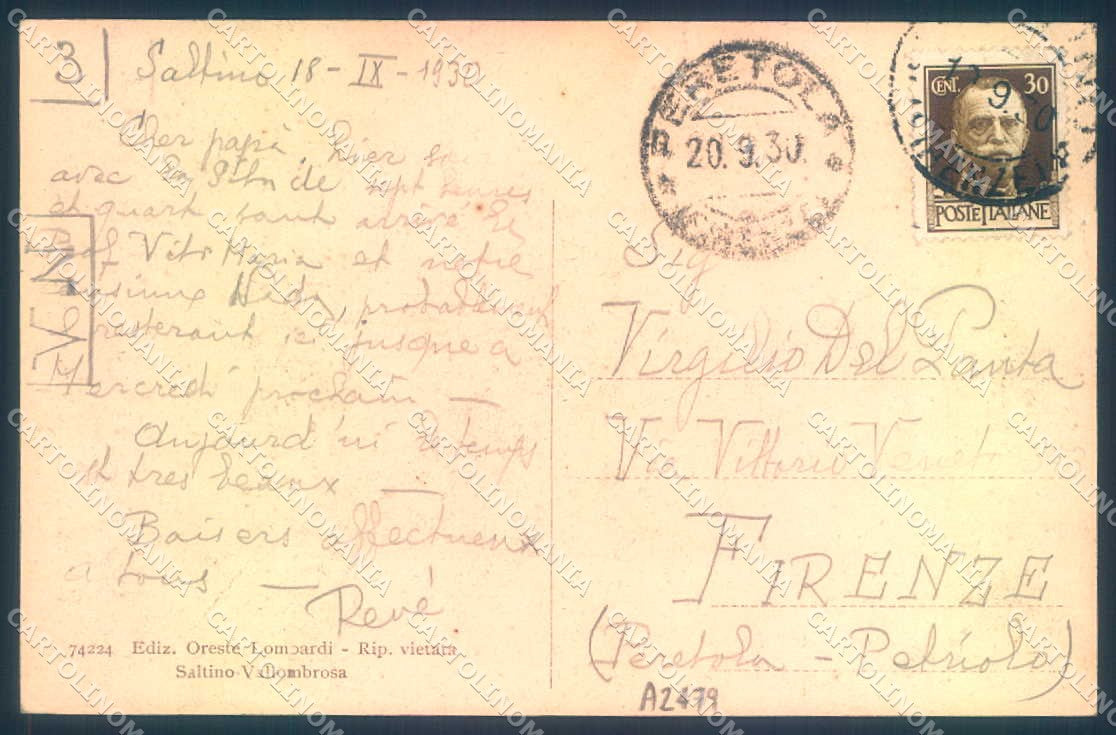 3
Saltino 18-IX-1930
Cher papà, hier
avec la sept heures
et quart sont arrivé le
Prof Vito Maria et notre
Neda, probablement
resterant ici jusque a
Mercredi prochain —
Aujourd'ui temps
et tres beaux —
Baisers affectueux
a tous —
René
V.N
74224 Ediz. Oreste Lombardi - Rip. vietata
Saltino-Vallombrosa
PERETOLA
20.9.30.
CENT. 30
POSTE ITALIANE
Sig
Virgilio Del Panta
Via Vittorio Veneto
FIRENZE
(Peretola - Petriolo)
A2479
CARTOLINOMANIA